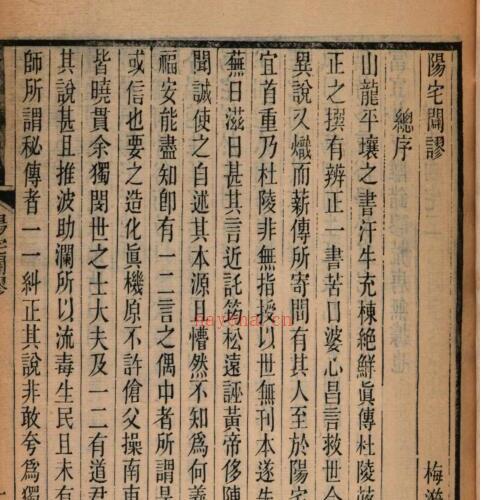 陽宅闢謬
總序
梅漪
山龍平壤之書汗牛充棟絕鮮眞傳杜陵
正之撰有辨正一書苦口婆心昌言救世
異說又熾而薪傳所寄間有其人至於陽
宜首重乃杜陵非無指授以世無刊本遂
蕪日滋日甚其言近託筠松遠誣黃帝侈陳
聞誠使之自述其本源且懵然不知爲何義
福安能盡知卽有一二言之偶中者所謂是
或信也要之造化眞機原不許傖父操南車
皆曉貫余獨閔世之士大夫及一二有道君
其說甚且推波助瀾所以流毒生民且未有
師所謂秘傳者一一糾正其說非敢兮爲獨
陽宅闢謬